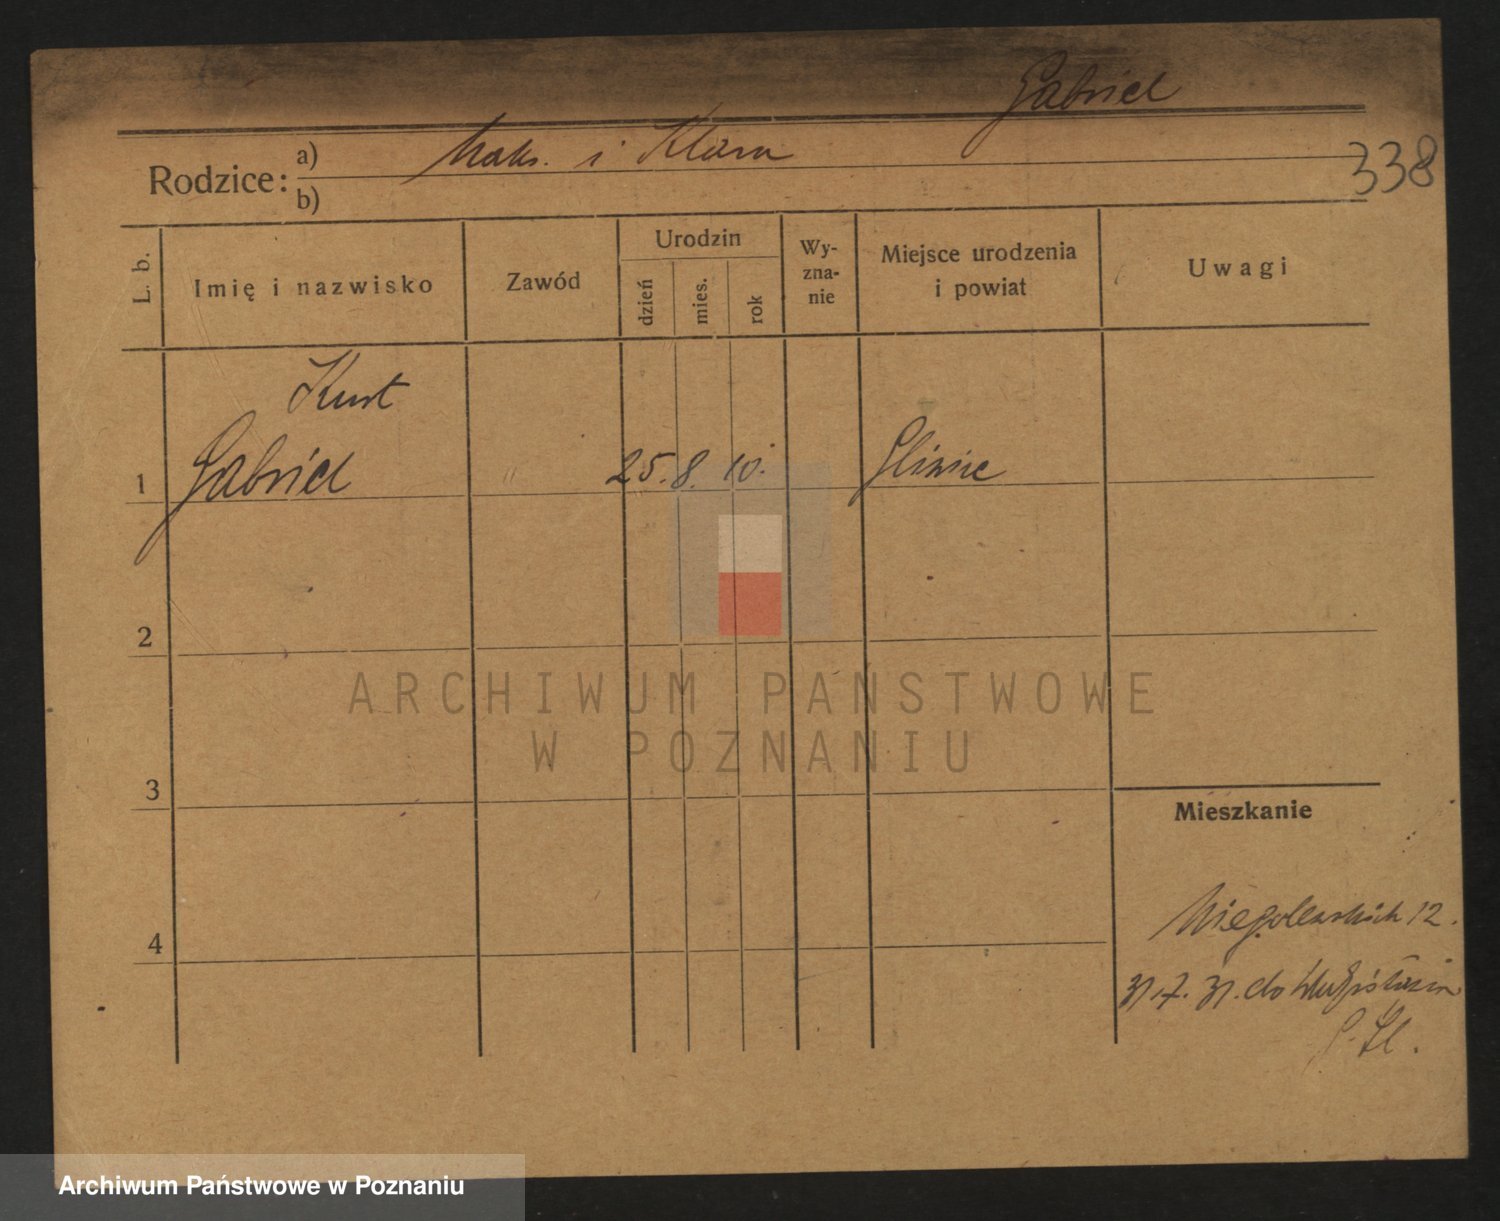 Gabriel
Rodzice: a) Maks. i Klara
b)
338
L. b.
Imię i nazwisko
Zawód
Urodzin
dzień
mies.
rok
Wy-
zna-
nie
Miejsce urodzenia
i powiat
Uwagi
Kurt
1 Gabriel 25. 8. 10. Gliwic
2
3
4
ARCHIWUM PAŃSTWOWE
W POZNANIU
Mieszkanie
Niegolewskich 12.
31.7.31. do
G. Śl.
Archiwum Państwowe w Poznaniu